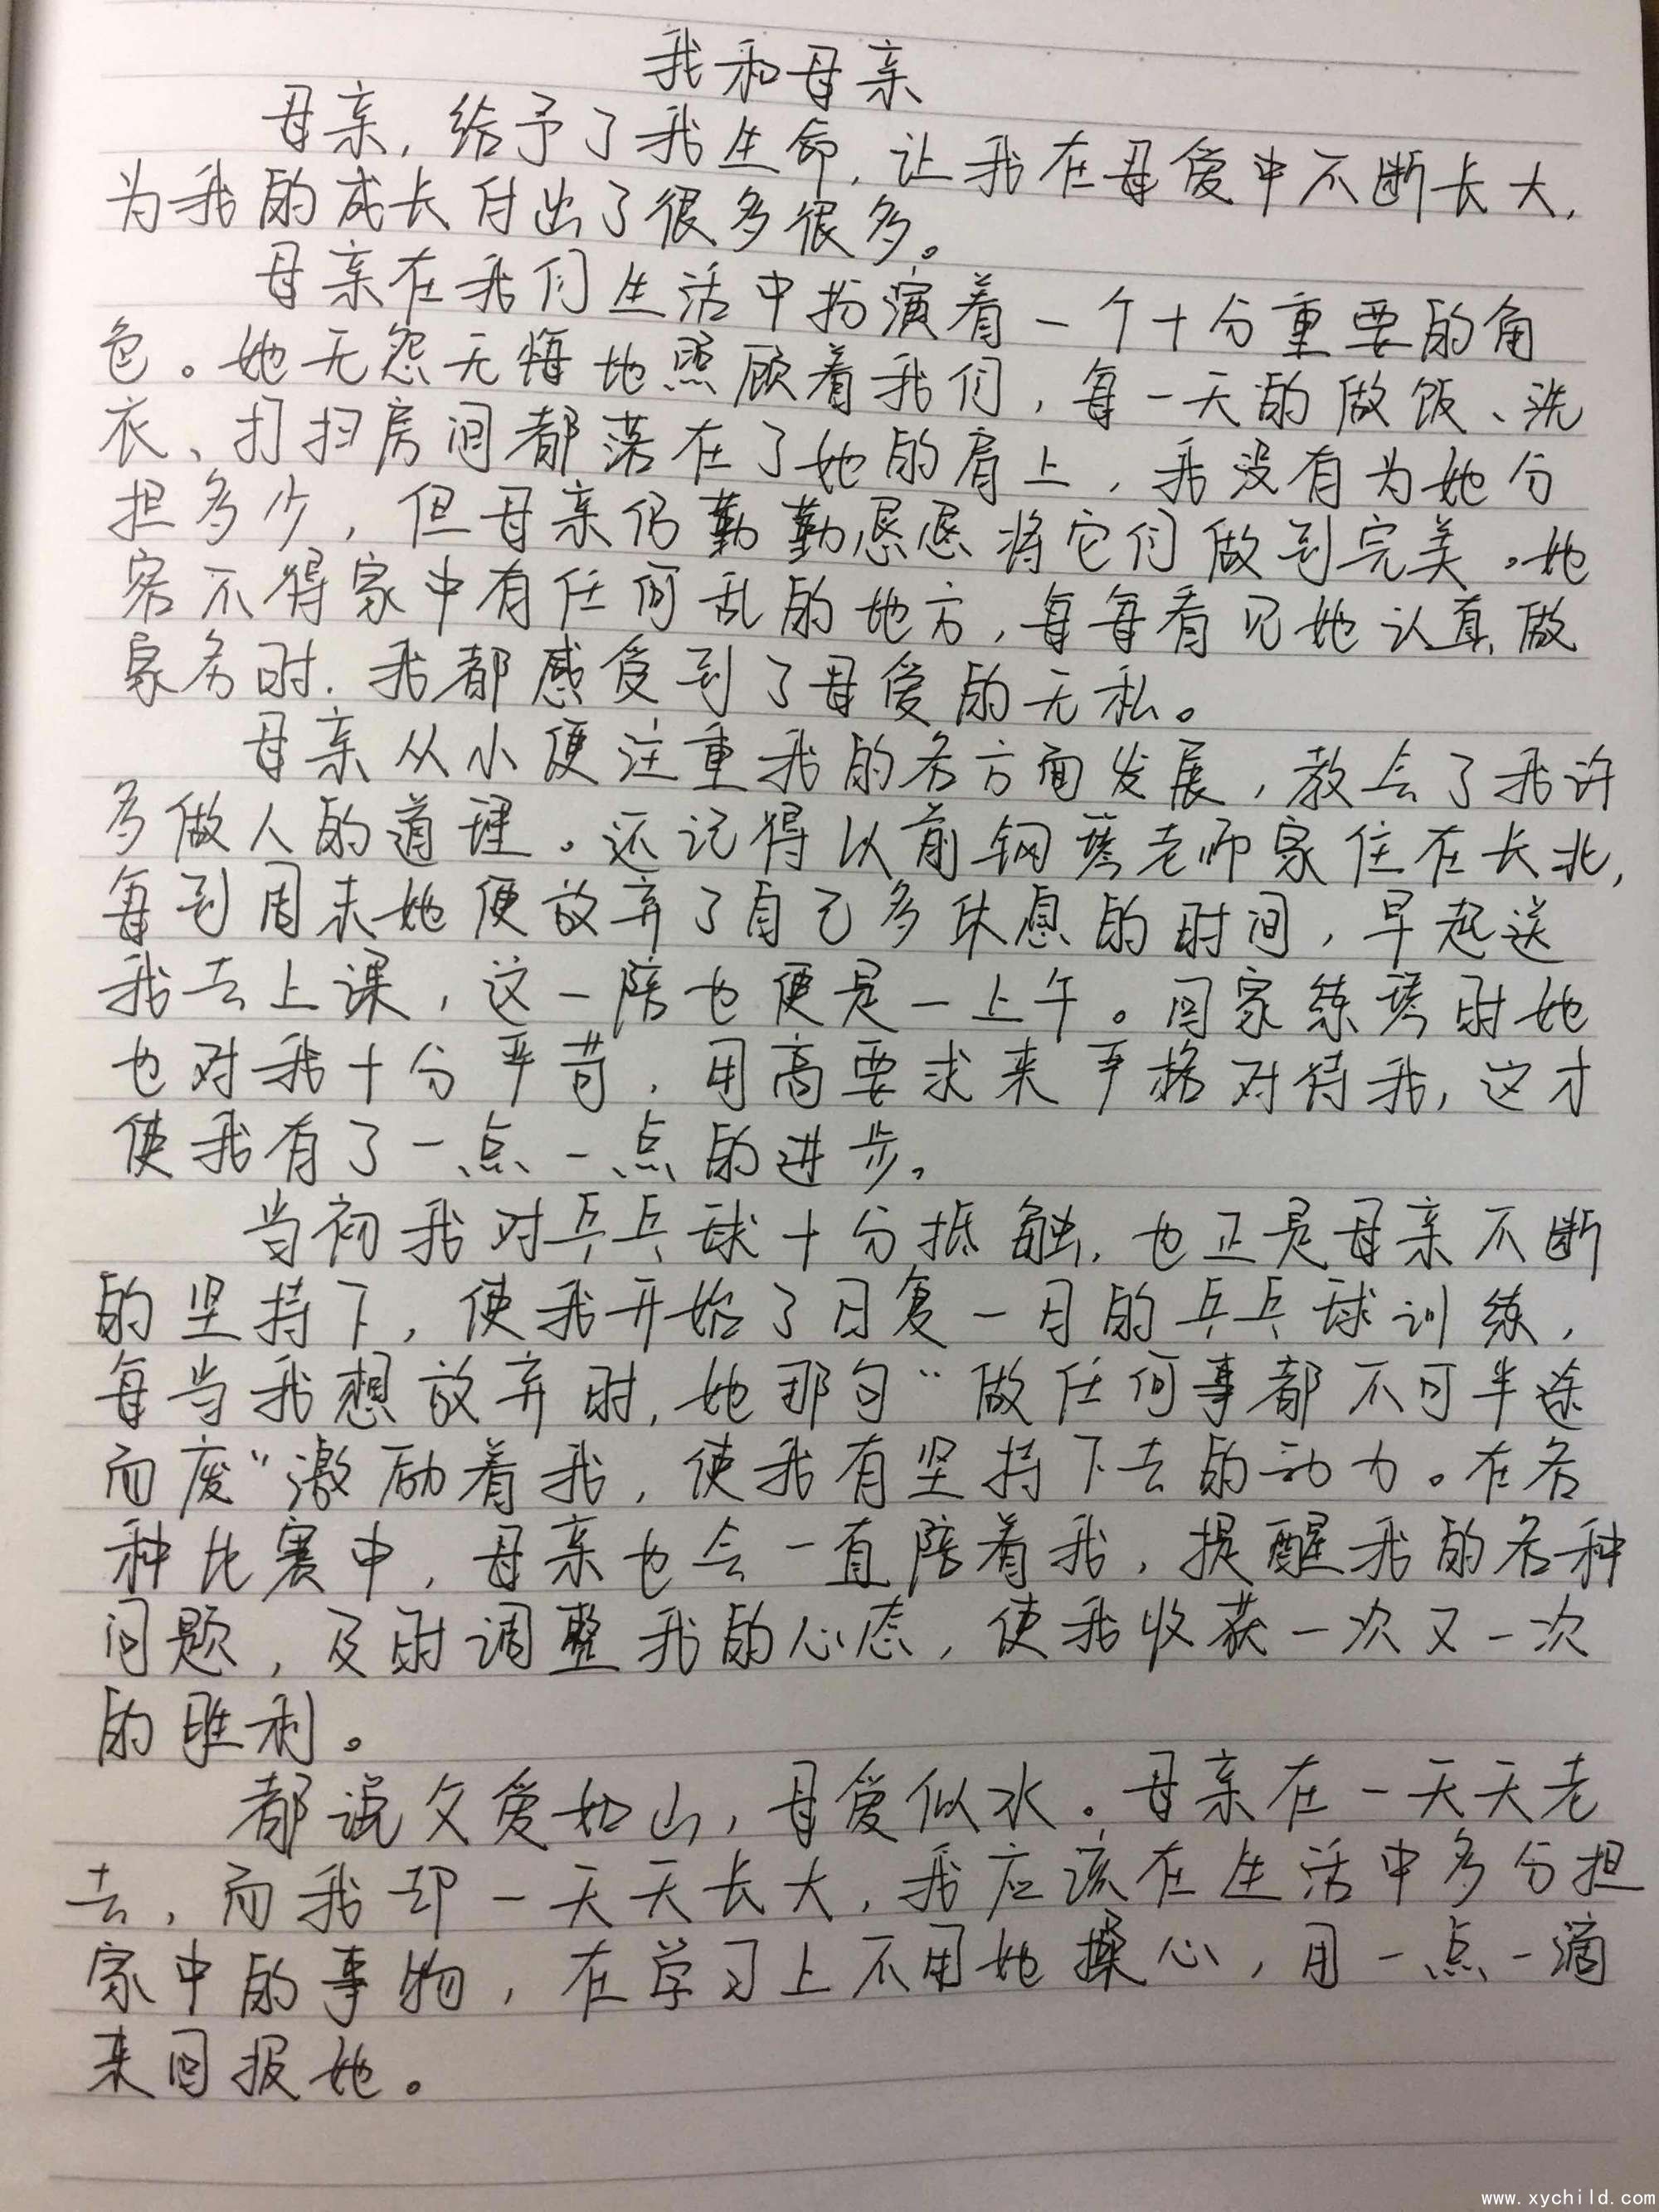 我和母亲
母亲，给予了我生命，让我在母爱中不断长大，
为我的成长付出了很多很多。
母亲在我们生活中扮演着一个十分重要的角
色。她无怨无悔地照顾着我们，每一天的做饭、洗
衣、打扫房间都落在了她的肩上，我没有为她分
担多少，但母亲仍勤勤恳恳将它们做到完美。她
容不得家中有任何乱的地方，每每看见她认真做
家务时，我都感受到了母爱的无私。
母亲从小便注重我的各方面发展，教会了我许
多做人的道理。还记得以前钢琴老师家住在长北，
每到周末她便放弃了自己多休息的时间，早起送
我去上课，这一陪也便是一上午。回家练琴时她
也对我十分严苛，用高要求来严格对待我，这才
使我有了一点一点的进步。
当初我对乒乓球十分抵触，也正是母亲不断
的坚持下，使我开始了日复一日的乒乓球训练，
每当我想放弃时，她那句“做任何事都不可半途
而废”激励着我，使我有坚持下去的动力。在各
种比赛中，母亲也会一直陪着我，提醒我的各种
问题，及时调整我的心态，使我收获一次又一次
的胜利。
都说父爱如山，母爱似水。母亲在一天天老
去，而我却一天天长大，我应该在生活中多分担
家中的事物，在学习上不用她操心，用一点一滴
来回报她。
www.xychild.com